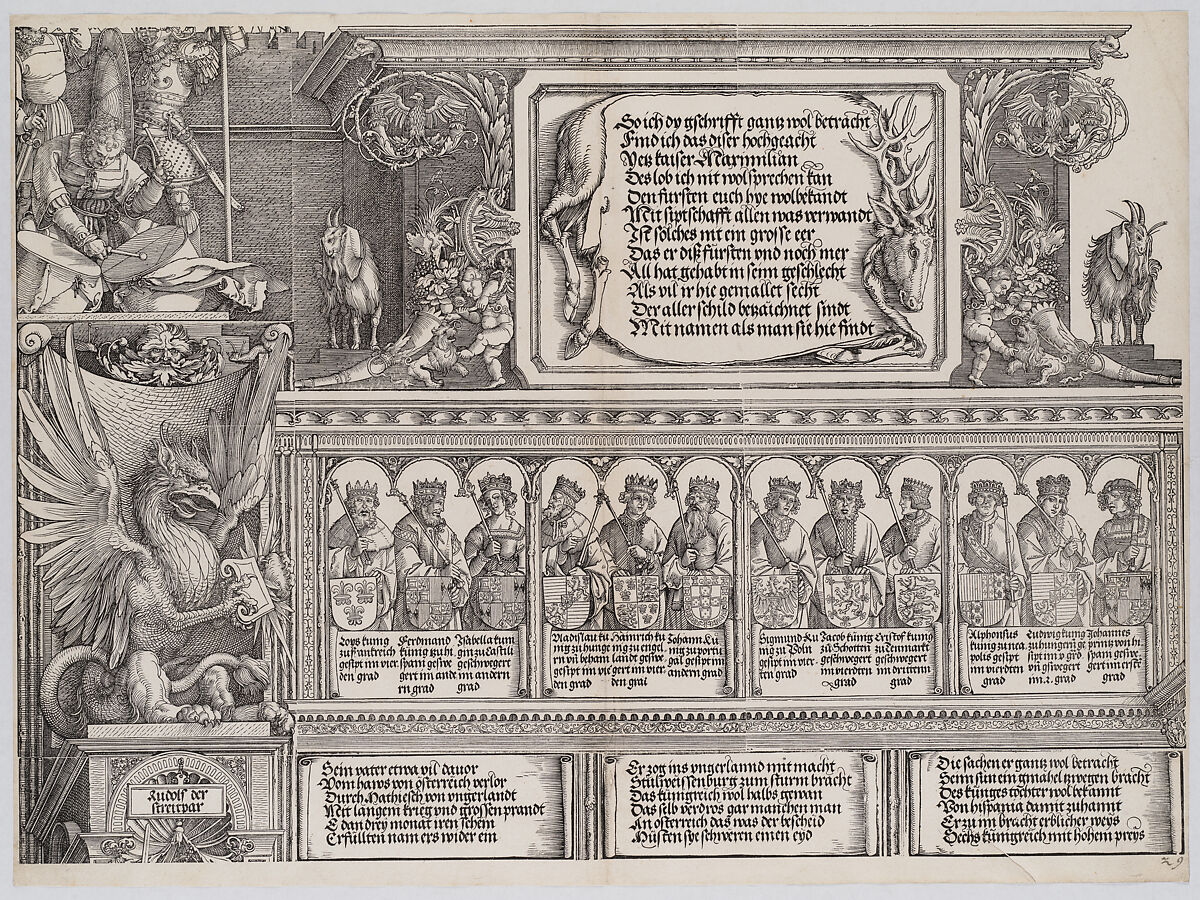 So ich dy gschrifft gantz wol betracht
Find ich das diser hochgeacht
Yetz kaiser Maximilian
Des lob ich nit wolsprechen kan
Den fursten euch hye wolbekandt
Mit siptschafft allen was verwandt
Ist solches nit ein grosse eer
Das er diß fürsten vnd noch mer
All hat gehabt in seim geschlecht
Als vil ir hie gemallet secht
Der aller schild bezaichnet sindt
Mit namen als man sie hie findt
Loys kunig
zu frankreich
gesipt im vier
den grad
Ferdinand
kunig zu hi
spani geswe
gert im ande
rn grad
Ysabella kuni
gin zu Castili
geschwegert
im andern
grad
Vladislau kü
nig zu hunge
rn vn beham
gesipt im vier
den grad
Hainrich kü
nig zu engel
land geswe
gert im vier
den grad
Johann kü
nig zu portu
gal gesipt im
andern grad
Sigmund kü
nig zu Poln
gesipt im vier
ten grad
Jacob kunig
zu Schotten
geschwegert
im vierden
grad
Cristof kunig
zu Tennmarkt
geschwegert
im dritten
grad
Alphonsus
kunig zu nea
polis gesipt
im vierdten
grad
Ludwig kunig
zu hungern ge
sipt im v grd
vn gswegert
im .2. grad
Johannes
prinz von hi
spani geswe
gert im erste
grad
Rudolf der
streitpar
Sein vater etwa vil dauor
Vom haws von österreich verlor
Durch Mathiesch von vngerlandt
Mit langem krieg vnd grossen prandt
E dan drey monat iren schein
Erfülten nam ers wider ein
Er zog ins vngerlannd mit macht
Stulweissenburg zum sturm bracht
Das kunigreich wol halbs gewan
Das selb verdros gar manchen man
An österreich das was der bescheid
Müsten sye schweren einen eyd
Die sachen er gantz wol betracht
Seim sun ein gmahel zwegen bracht
Des kunges tochter wol bekannt
Von hispania damit zuhannt
Er zu im bracht erblicher weys
Sechs kunigreich mit hohem preys
29